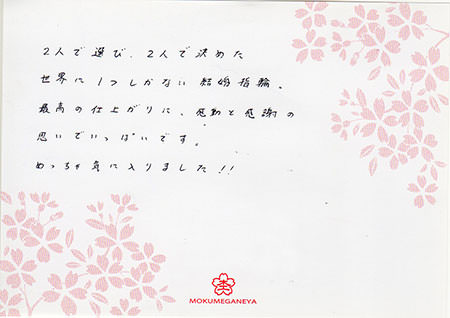 2人で選び、2人で決めた
世界に1つしかない結婚指輪。
最高の仕上がりに、感動と感謝の
思いでいっぱいです。
めっちゃ気に入りました!!
MOKUMEGANEYA